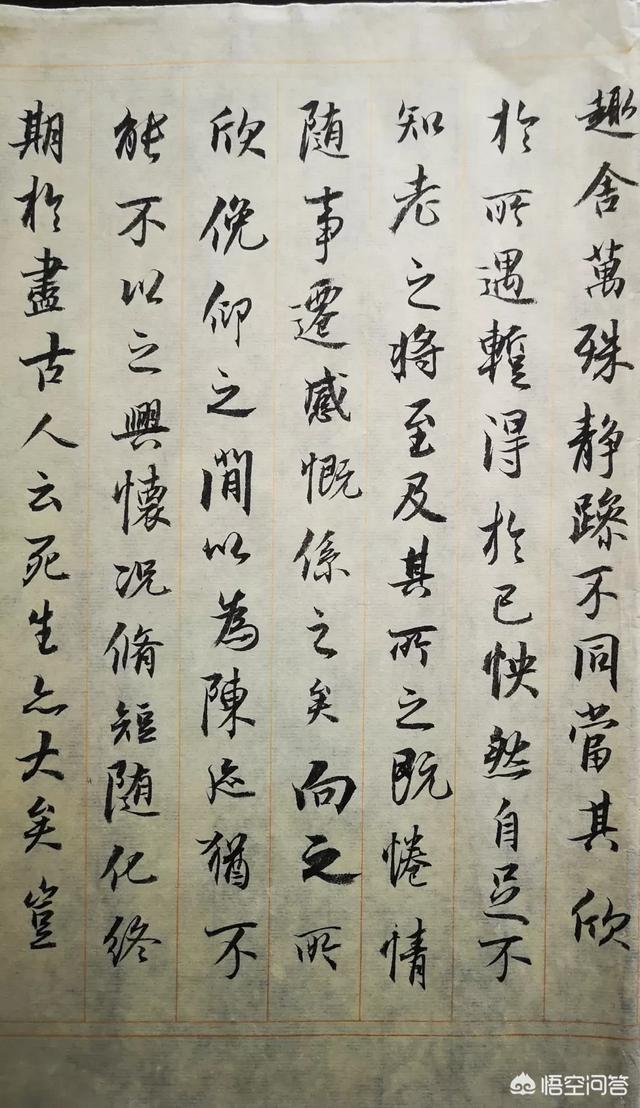 趣舍萬殊静躁不同當其欣
於所遇蹔得於己怏然自足不
知老之将至及其所之既惓情
随事遷感慨係之矣向之所
欣俛仰之閒以為陳迹猶不
能不以之興懷況脩短随化終
期於盡古人云死生亦大矣豈
悟空问答